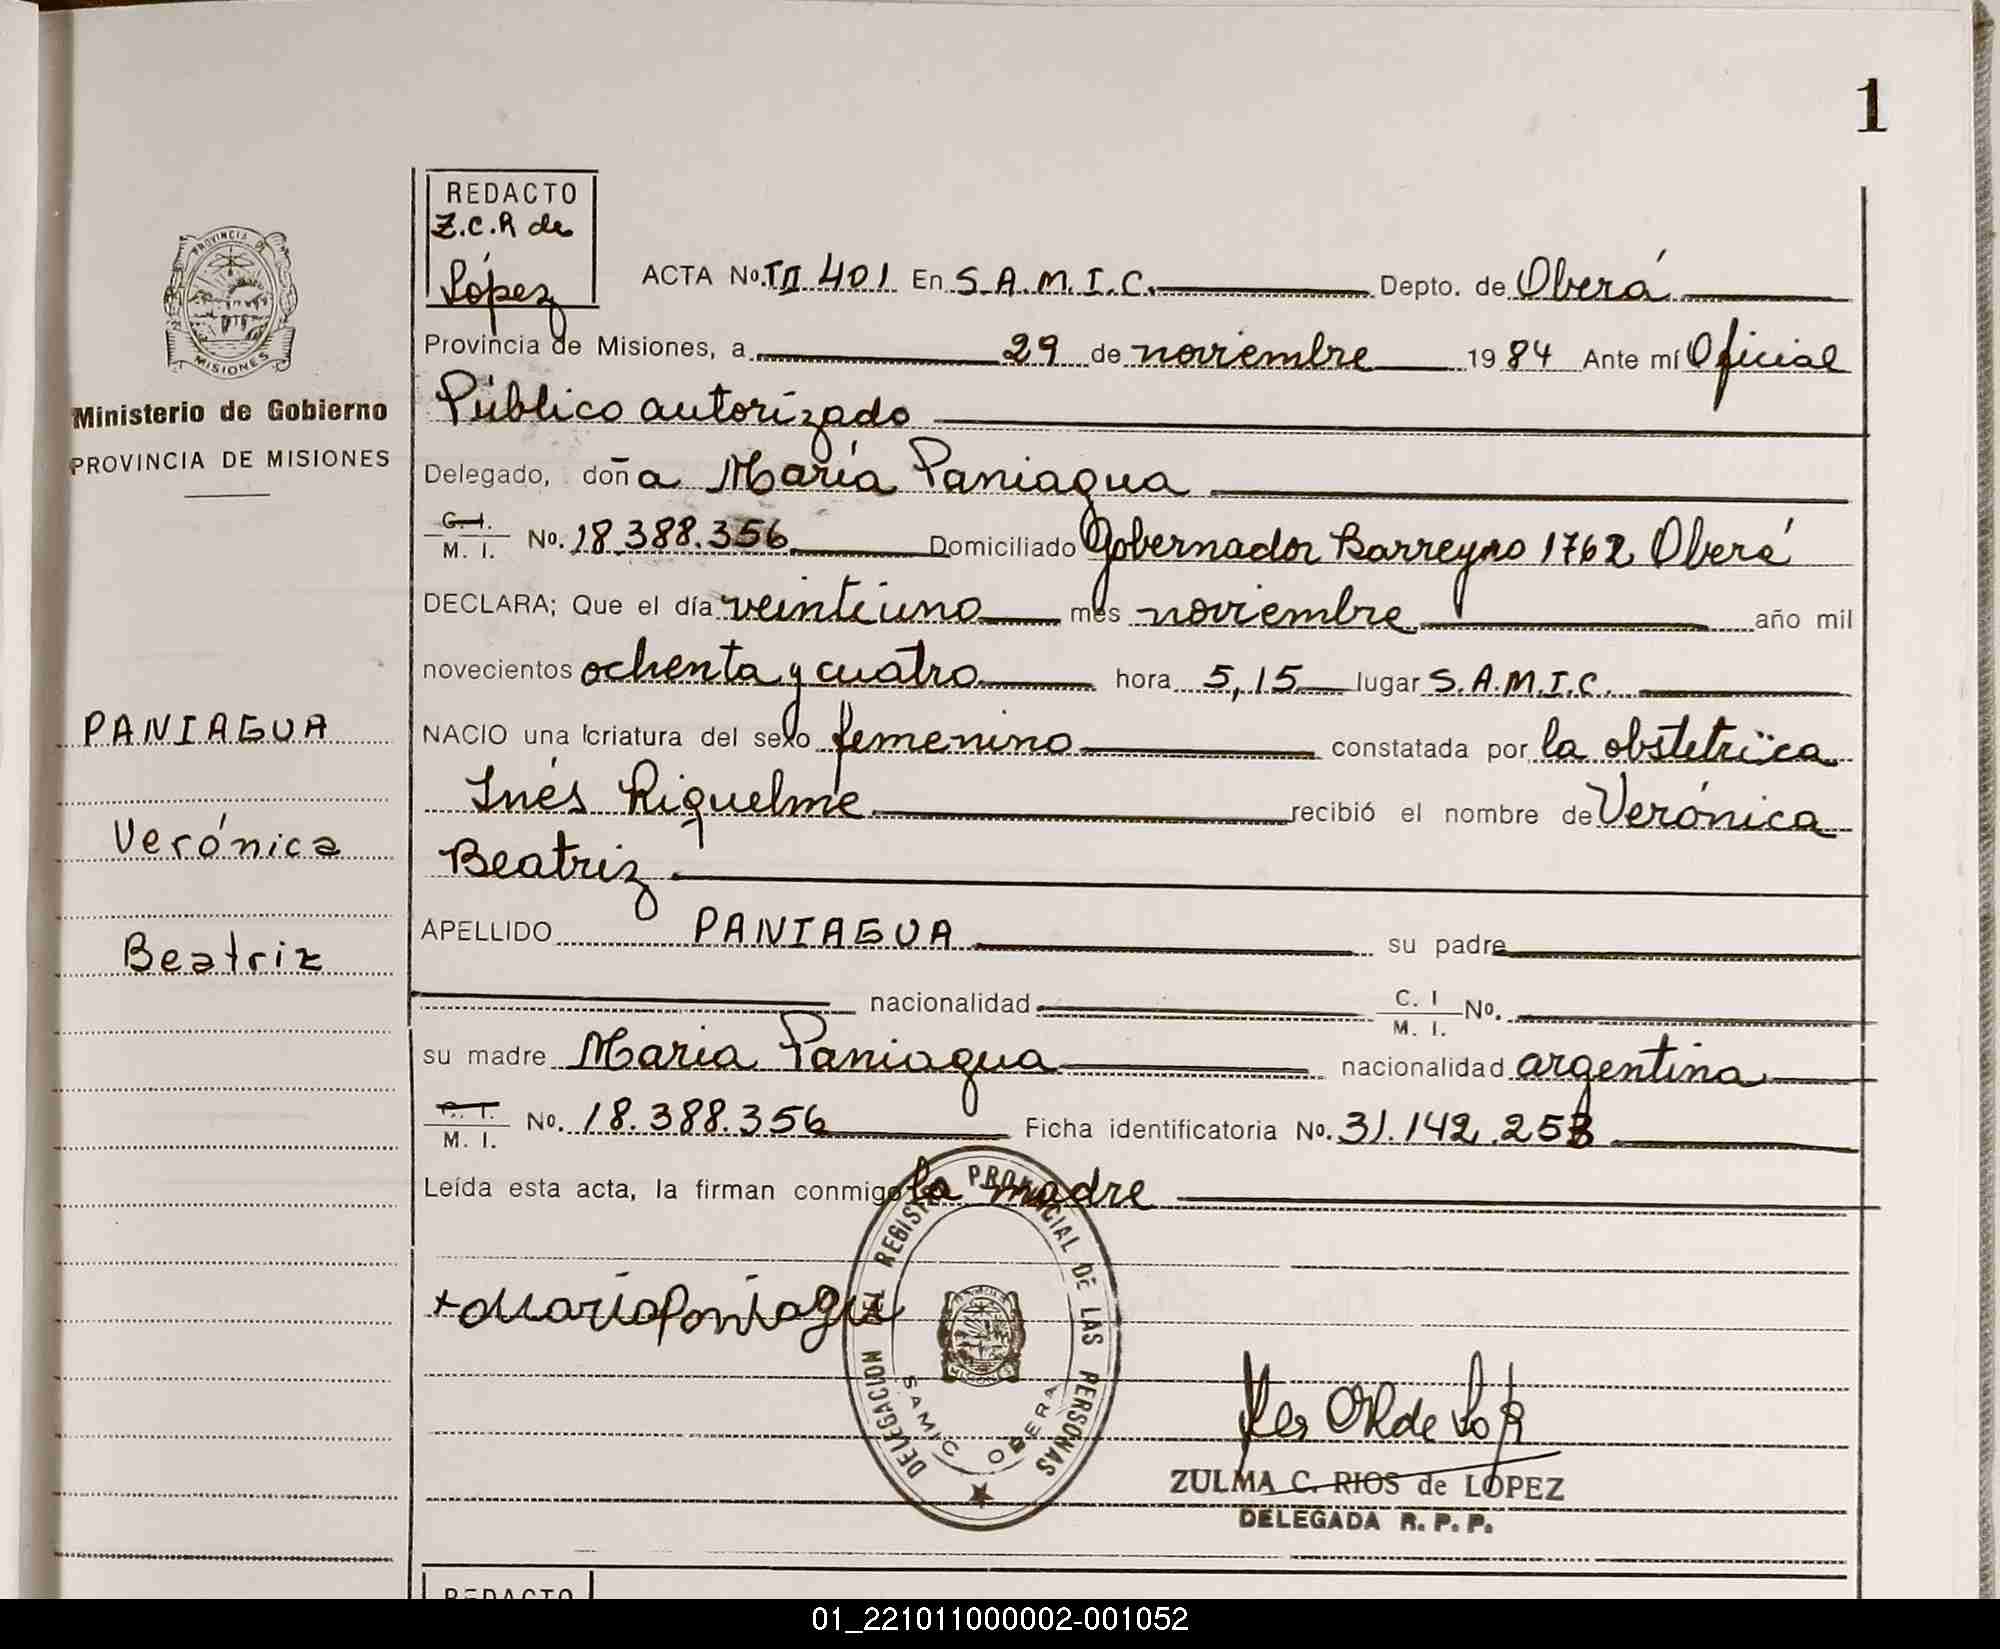 1
REDACTO
Z.C.R de
López
PROVINCIA DE
MISIONES
Ministerio de Gobierno
PROVINCIA DE MISIONES
ACTA No. TII 401 En S.A.M.I.C. Depto. de Oberá
Provincia de Misiones, a 29 de noviembre 1984 Ante mí Oficial
Público autorizado
Delegado, doña María Paniagua
C.I.
M. I. No. 18.388.356 Domiciliado Gobernador Barreyro 1762 Oberá
DECLARA; Que el día veintiuno mes noviembre año mil
novecientos ochenta y cuatro hora 5,15 lugar S.A.M.I.C.
PANIAGUA
NACIO una criatura del sexo femenino constatada por la obstetrica
Inés Riquelme recibió el nombre de Verónica
Verónica
Beatriz
APELLIDO PANIAGUA su padre
Beatriz
nacionalidad C. I
M. I. No.
su madre María Paniagua nacionalidad argentina
M. I. No. 18.388.356 Ficha identificatoria No. 31.142.253
Leída esta acta, la firman conmigo la madre
+ María Paniagua
DELEGACION DEL REGISTRO PROVINCIAL DE LAS PERSONAS
SAMIC OBERA
ZULMA C. RIOS de LOPEZ
DELEGADA R. P. P.
REDACTO
01_221011000002-001052